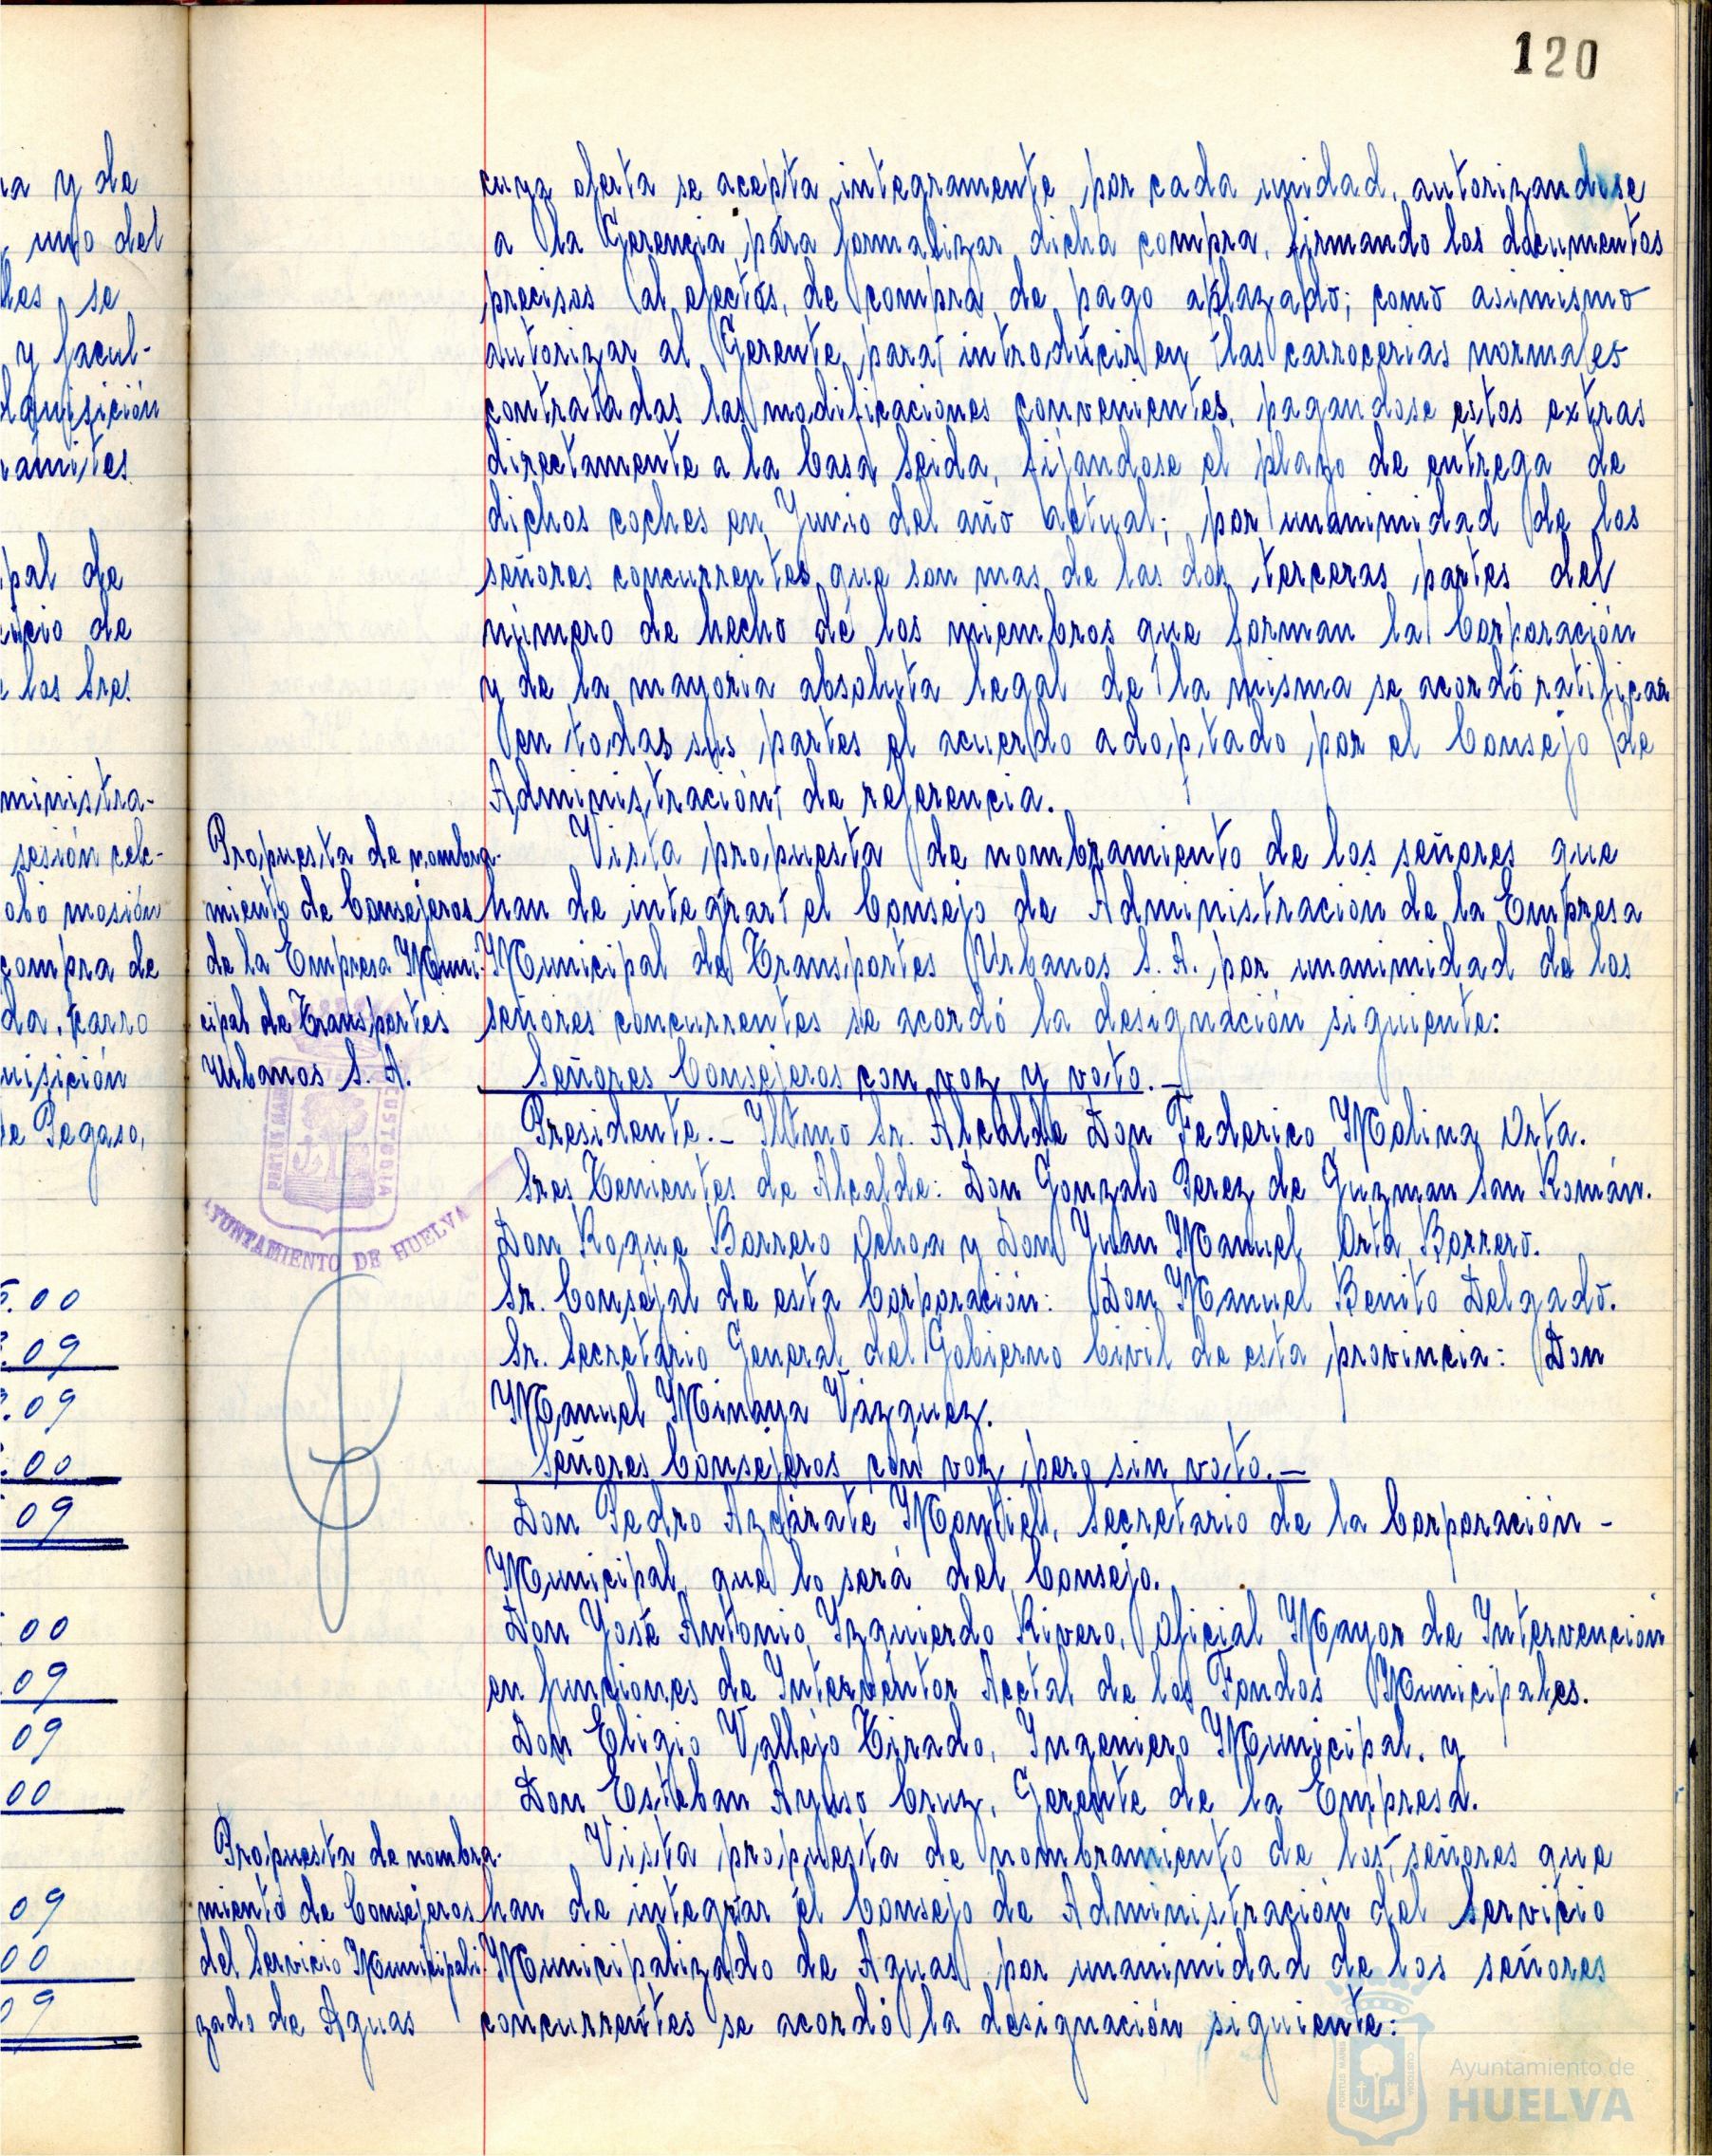 120
cuya oferta se acepta integramente por cada unidad, autorizandose
a la Gerencia para formalizar dicha compra, firmando los documentos
precisos al efectos, de compra de pago aplazado; como asimismo
autorizar al Gerente para introducir en las carrocerias normales
contratadas las modificaciones convenientes, pagandose estos extras
directamente a la Casa Seida, fijandose el plazo de entrega de
dichos coches en Junio del año actual; por unanimidad de los
señores concurrentes que son mas de las dos terceras partes del
número de hecho de los miembros que forman la Corporación
y de la mayoria absoluta legal de la misma se acordó ratificar
en todas sus partes el acuerdo adoptado por el Consejo de
Administración, de referencia.
Propuesta de nombra-
miento de Consejeros
de la Empresa Muni-
cipal de Transportes
Urbanos S. A.
Vista propuesta de nombramiento de los señores que
han de integrar el Consejo de Administración de la Empresa
Municipal de Transportes Urbanos S. A. por unanimidad de los
señores concurrentes se acordó la designación siguiente:
Señores Consejeros con voz y voto.-
Presidente.- Iltmo Sr. Alcalde Don Federico Molina Orta.
Sres Tenientes de Alcalde: Don Gonzalo Perez de Guzman San Román.
Don Roque Barrero Ochoa y Don Juan Manuel Orta Borrero.
Sr. Consejal de esta Corporación: Don Manuel Benito Delgado.
Sr. Secretario General del Gobierno Civil de esta provincia: Don
Manuel Minaya Vazquez.
Señores Consejeros con voz pero sin voto.-
Don Pedro Azcárate Montiel, Secretario de la Corporación -
Municipal, que lo será del Consejo.
Don José Antonio Izquierdo Rivero, Oficial Mayor de Intervención
en funciones de Interventor Acctal de los Fondos Municipales.
Don Eligio Vallejo Tirado, Ingeniero Municipal. y
Don Esteban Ayuso Cruz, Gerente de la Empresa.
Propuesta de nombra-
miento de Consejeros
del Servicio Municipali-
zado de Aguas
Vista propuesta de nombramiento de los señores que
han de integrar el Consejo de Administración del Servicio
Municipalizado de Aguas por unanimidad de los señores
concurrentes se acordó la designación siguiente:
PORTUS MARIS
CUSTODIA
AYUNTAMIENTO DE HUELVA
y de
uno del
se
y facul-
dquisición
ramites
pal de
de
los Sres.
ministra-
sesión cele-
obó mosión
compra de
da, carro
uisición
de Pegaso,
.00
.09
.09
.00
09
00
09
09
00
09
00
09
Ayuntamiento de
HUELVA